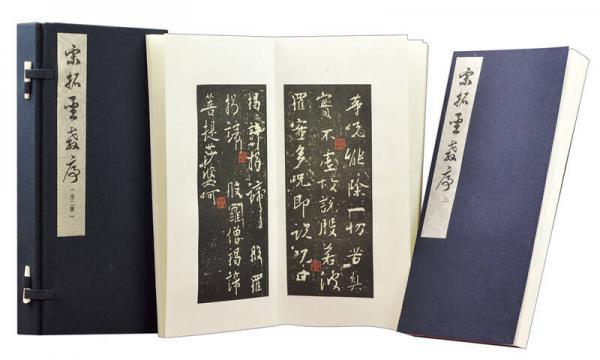 宋拓聖教序
（全二册）
等呪能除一切苦真
實不虛故說般若波
羅蜜多呪即說呪曰
揭諦揭諦 般羅
揭諦 般羅僧揭諦
菩提莎婆呵
宋拓聖教序